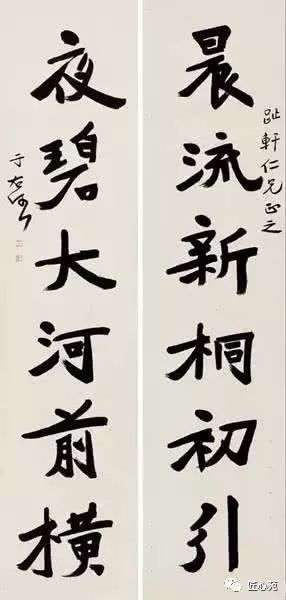 趾軒仁兄正之
晨流新桐初引
夜碧大河前橫
于右任
匠心苑